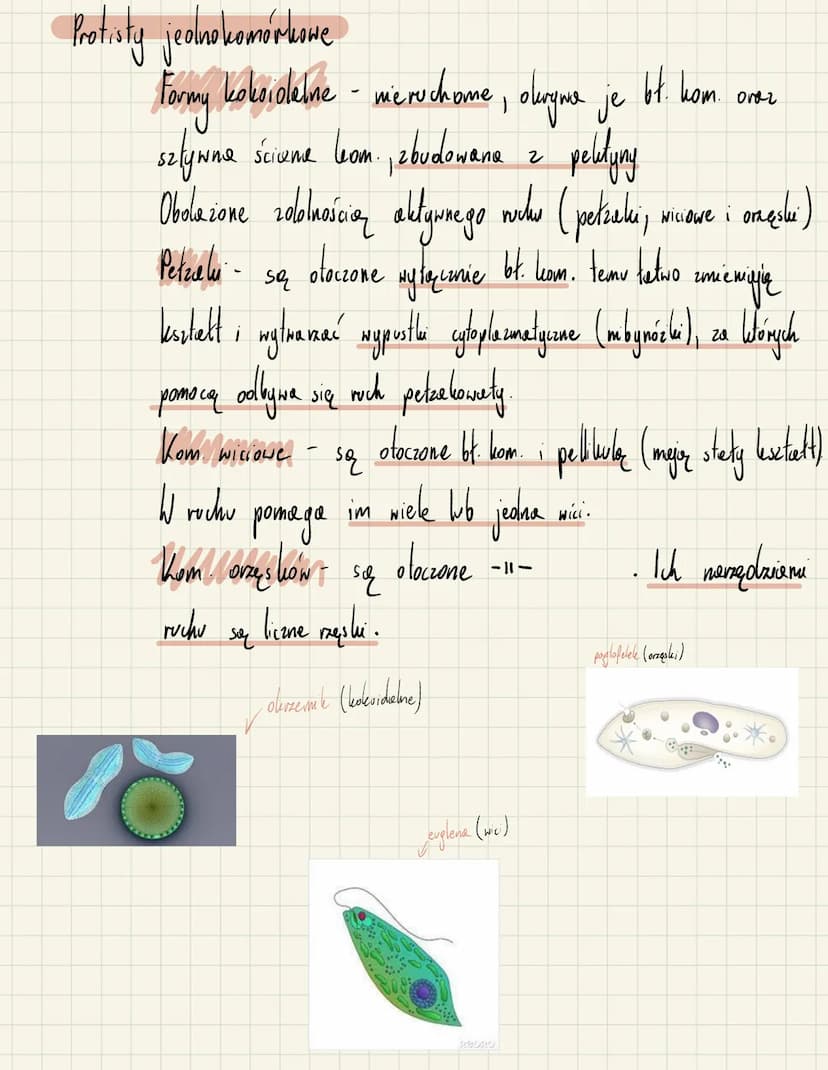 Protisty jednokomórkowe
Formy kokoidalne - nieruchome, okrywa je bł. kom. oraz
sztywna ściana kom., zbudowana z pektyny
Obdażone zdolnością aktywnego ruchu (pełzaki, wiciowe i orzęski)
Pełzaki - są otoczone wyłącznie bł. kom. temu łatwo zmieniają
kształt i wytwarzać wypustki cytoplazmatyczne (nibynóżki), za których
pomocą odbywa się ruch pełzakowaty.
Kom. wiciowe - są otoczone bł. kom. i pellikulą (mają stały kształt)
W ruchu pomaga im wiele lub jedna wici.
Kom. orzęsków - są otoczone -11- . Ich narzędziami
ruchu są liczne rzęski.
pantofelek (orzęski)
okrzemik (kokoidalne)
euglena (wici)